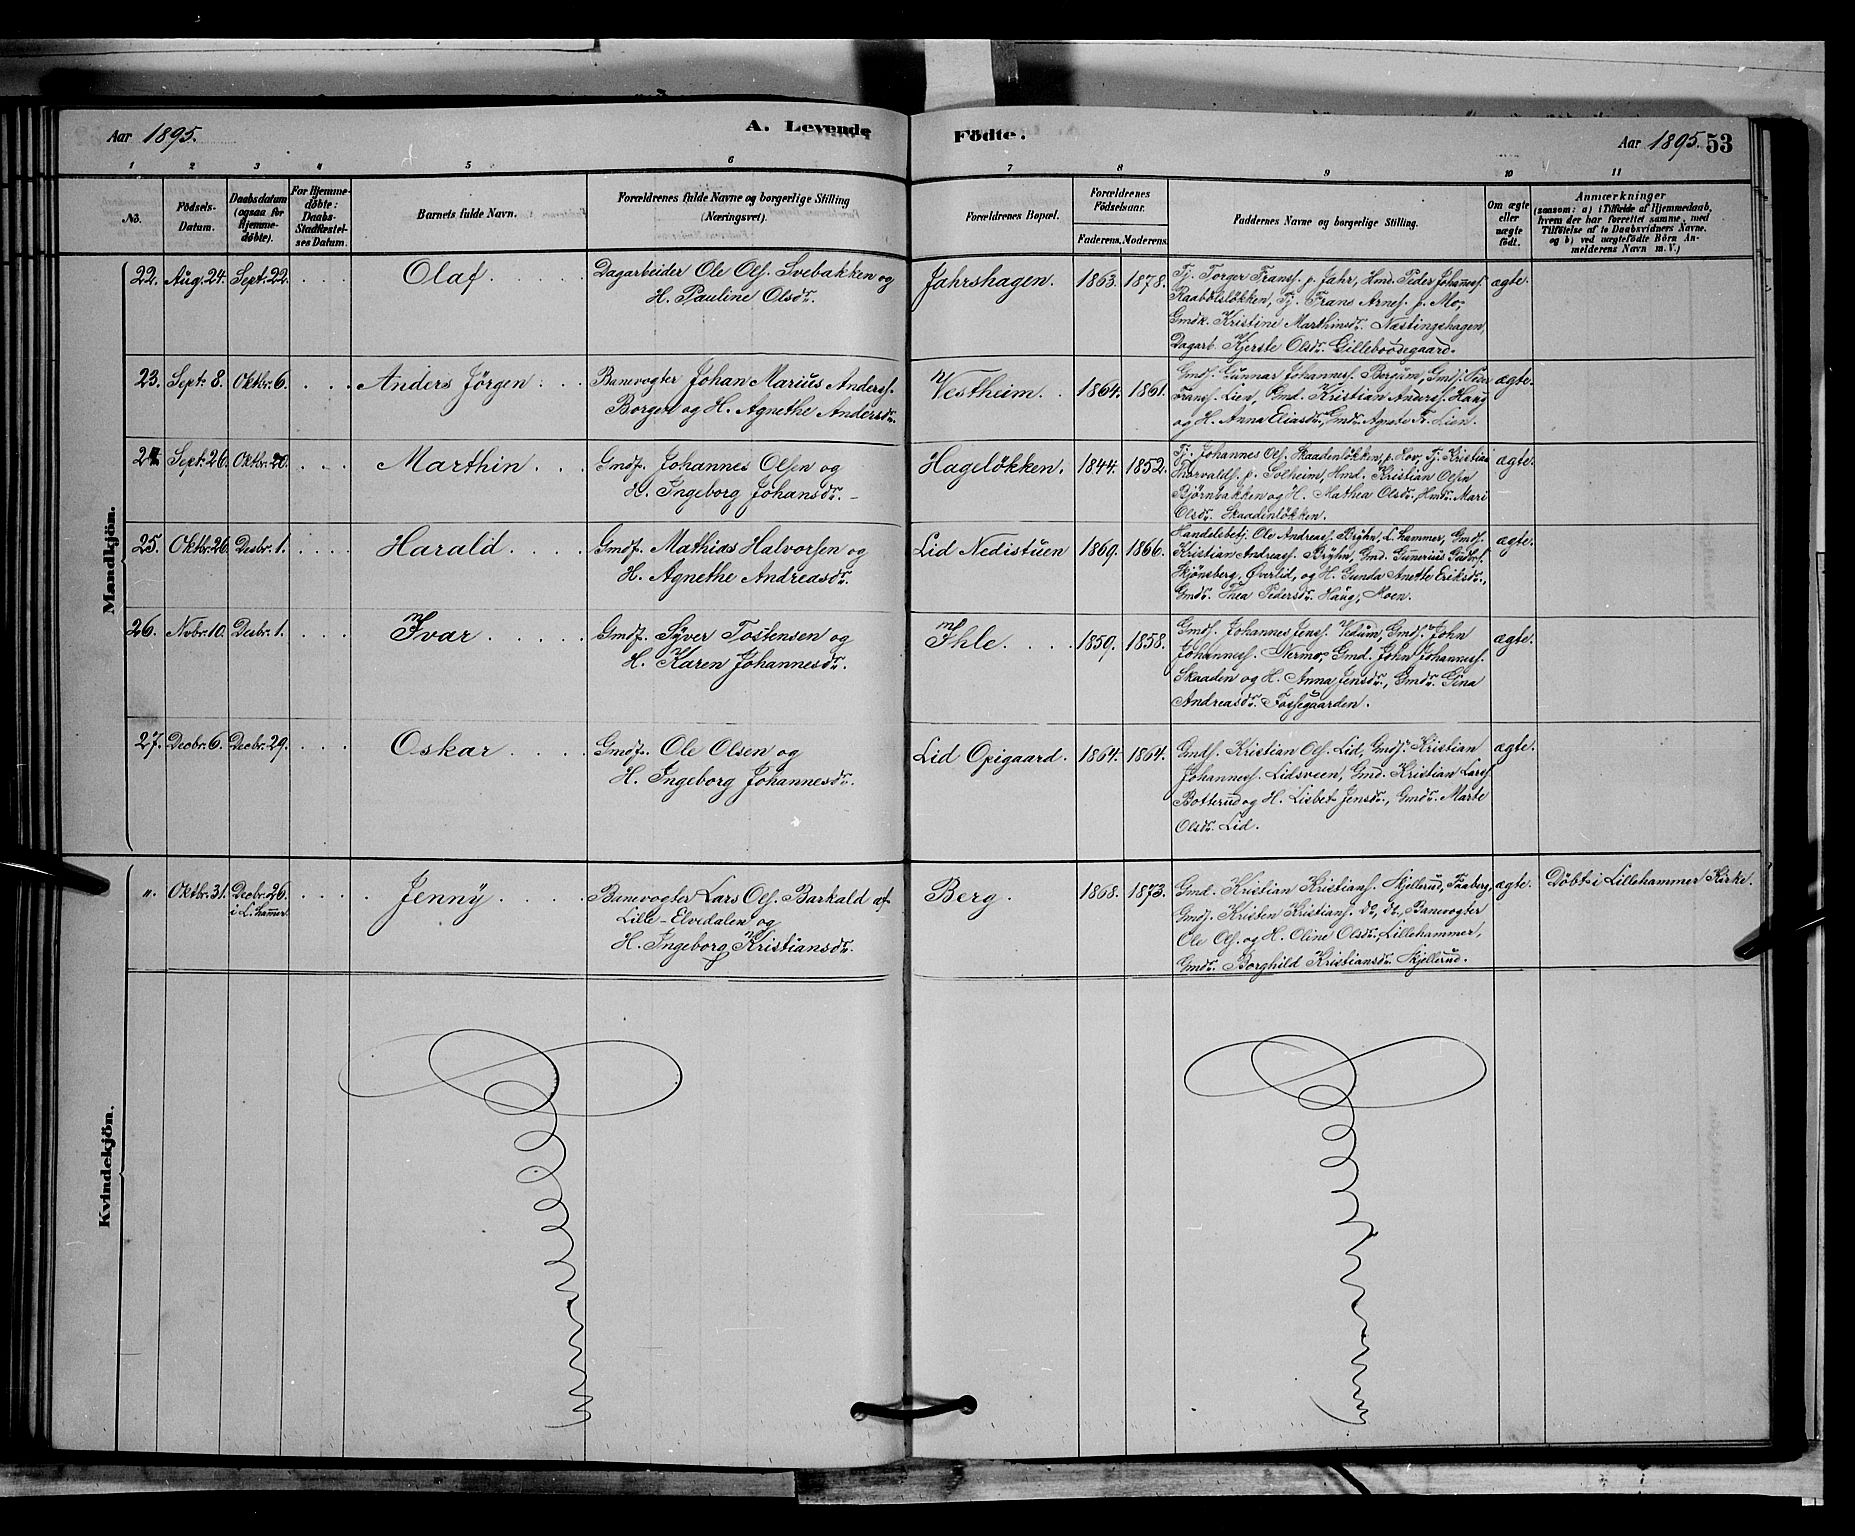 Aar 1895. A. Levende Födte. Aar 1895. 53
1 2 3 4 5 6 7 8 9 10 11
No. Födsels-Datum. Daabsdatum (ogsaa for Hjemme-döbte). For Hjemme-döbte: Daabs-Stadfæstel-ses Datum. Barnets fulde Navn. Forældrenes fulde Navne og borgerlige Stilling (Næringsvei). Forældrenes Bopæl. Forældrenes Födselsaar. Faderens. Moderens. Faddernes Navne og borgerlige Stilling. Om ægte eller uægte födt. Anmærkninger
(saasom: a) i Tilfælde af Hjemmedaab,
hvem der har forrettet samme, med
Tilföielse af to Daabsvidners Navne.
og b) ved uægtefödte Börn An-
melderens Navn m. V.)
Mandkjön.
22. Aug. 24. Sept. 22. Olaf. Dagarbeider Ole Ols. Svebakken og
H. Pauline Olsdr.
Jahrshagen. 1863. 1878.
Tj. Torger Franss. p. Jahr, Hmd. Peder Johanness.
Raabölsløkken, Tj. Frans Arnes. p. Mo,
Gmdk. Kristine Marthinsdr. Næstingshagen,
Dagarb. Kjerste Olsdr. Gilleboödegaard.
ægte.
23. Sept. 8. Oktbr. 6. Anders Jørgen. Banevogter Johan Marius Anderss.
Borgen og H. Agnethe Andersdr.
Vestheim. 1864. 1861.
Gmds. Gunnar Johanness. Bergum, Gmds.
Franss. Lien, Gmd. Kristian Anderss. Haug
og H. Anna Eliasdr., Gmdr. Agnete Fr. Lien.
ægte.
24. Sept. 26. Oktbr. 20. Marthin. Gmdf. Johannes Olsen og
H. Ingeborg Johansdr.
Hageløkken. 1844. 1852.
Tj. Johannes Ols. Skaadenløkken, p. Hov, Tj. Kristian
Thorvalds. p. Solheim, Hmd. Kristian Olsen
Bjørnbakken og H. Mathea Olsdr., Hmdr. Mari
Olsdr. Skaadenløkken.
ægte.
25. Oktbr. 26. Desbr. 1. Harald. Gmdf. Mathias Halvorsen og
H. Agnethe Andreasdr.
Lid Nedistuen 1869. 1866.
Handelsbetj. Ole Andreass. Bryhn, L.hammer, Gmds.
Kristian Andreass. Bryhn, Gmd. Gunerius
Skjønsberg, Øverlid, og H. Gunda Anette Eriksdr.,
Gmdr. Thea Pedersdr. Haug, Moen.
ægte.
26. Nvbr. 10. Desbr. 1. Ivar. Gmdf. Syver Tostensen og
H. Karen Johannesdr.
Ihle. 1859. 1858.
Gmds. Johannes Jenss. Vedum, Gmds. John
Johanness. Nermo, Gmd. John Johanness.
Skaaden og H. Anna Jensdr., Gmdr. Gina
Andreasdr. Fossegaarden.
ægte.
27. Decbr. 6. Decbr. 29. Oskar. Gmdf. Ole Olsen og
H. Ingeborg Johannesdr.
Lid Opigaard. 1864. 1864.
Gmds. Kristian Ols. Lid, Gmds. Kristian
Johanness. Lidsveen, Gmd. Kristian Lars.
Botterud og H. Lisbet Jensdr., Gmdr. Marte
Olsdr. Lid.
ægte.
Kvindekjön.
". Oktbr. 31. Decbr. 26. i L.hammer. Jenny. Banevogter Lars Ols. Barkald af
Lille-Elvedalen og
H. Ingeborg Kristiansdr.
Berg. 1868. 1873.
Gmd. Kristian Kristians. Skjellerud, Faaberg,
Gmds. Kristen Kristians. do, do, Banevogter
Ole Ols. og H. Oline Olsdr., Lillehammer,
Gmdr. Borghild Kristiansdr. Skjellerud.
ægte. Döbt i Lillehammer Kirke.